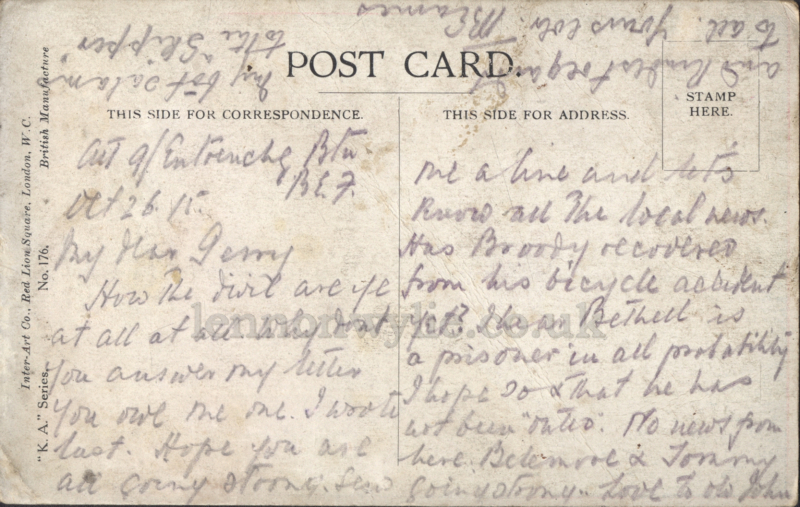 POST CARD.
THIS SIDE FOR CORRESPONDENCE.
THIS SIDE FOR ADDRESS.
STAMP
HERE.
Inter-Art Co., Red Lion Square, London, W.C.
"K. A." Series.
No. 176.
British Manufacture
Att 9/Entrenchg Btn
BEF
Oct 26 15.
My dear Gerry
How the divil are ye
at all at all. Why dont
you answer my letter
You owe me one. I wrote
last. Hope you are
all going strong. Sen
me a line and let's
know all the local news.
Has Broody recovered
from his bicycle accident
yet? I hear Bethell is
a prisoner in all probability
I hope so & that he has
not been "outed". No news from
here. & Tommy
going strong. Love to old John
my bot salam
to the "Skipper"
and kindest regards
to all. Yours
lennonwylie.co.uk